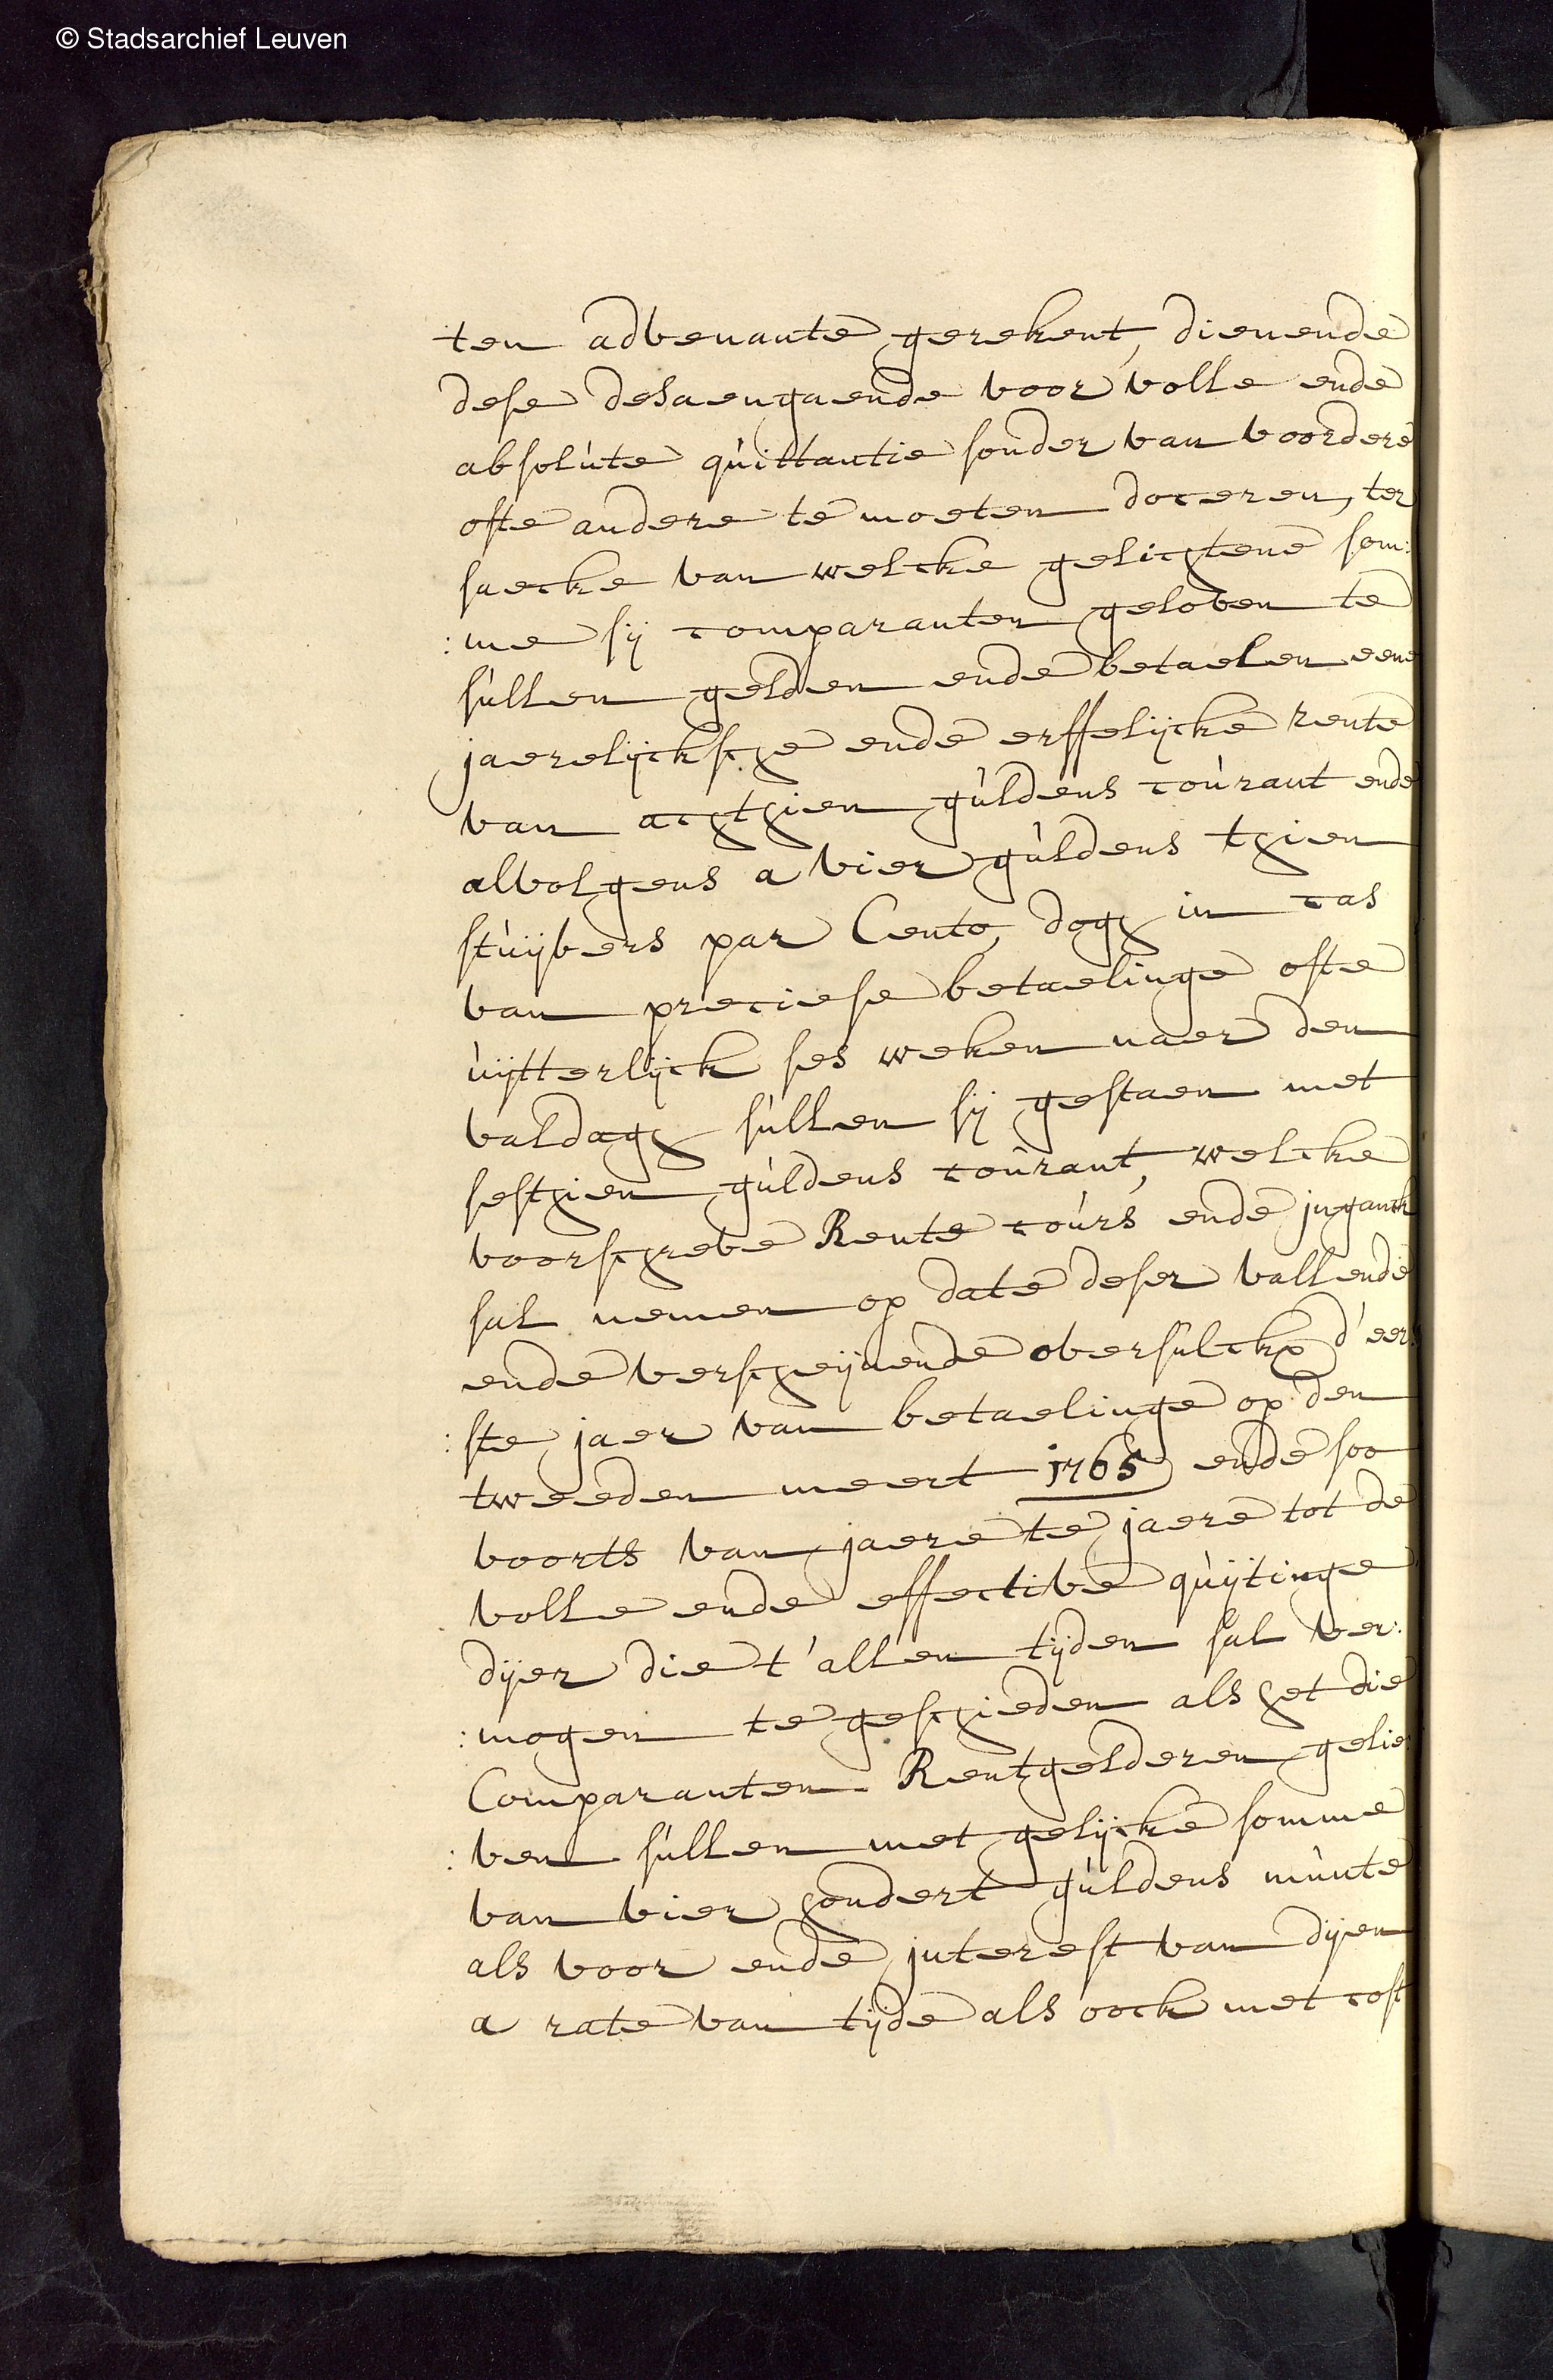 © Stadsarchief Leuven
ten advenante gerekent, dienende
dese desaengaende voor volle ende
absolute quittantie sonder van voordere
ofte andere te moeten doceren, ter
saecke van welcke gelichtene som:
:me sij comparanten geloven te
sullen gelden ende betaelen eene
jaerelijcksche ende erffelijcke rente
van achthien guldens courant ende
alvolgens a vier guldens thien
stuijvers par Cento, dogh in cas
van preciese betaelinge ofte
uijtterlijck ses weken naer den
valdagh sullen sij gestaen met
sesthien guldens courant, welcke
voorschreve Rente cours ende inganck
sal nemen op date deser vallende
ende verscheijnende oversulckx d'eer:
:ste jaer van betaelinge op den
tweeden meert 1765 ende soo
voorts van jaere te jaere tot de
volle ende effective quijtinge
dijer die t'allen tijden sal ver:
:mogen te geschieden als het die
Comparanten Rentgelderen gelie:
:ven sullen met gelijcke somme
van vier hondert guldens munte
als voor ende interest van dijen
a rate van tijde als oock met cost